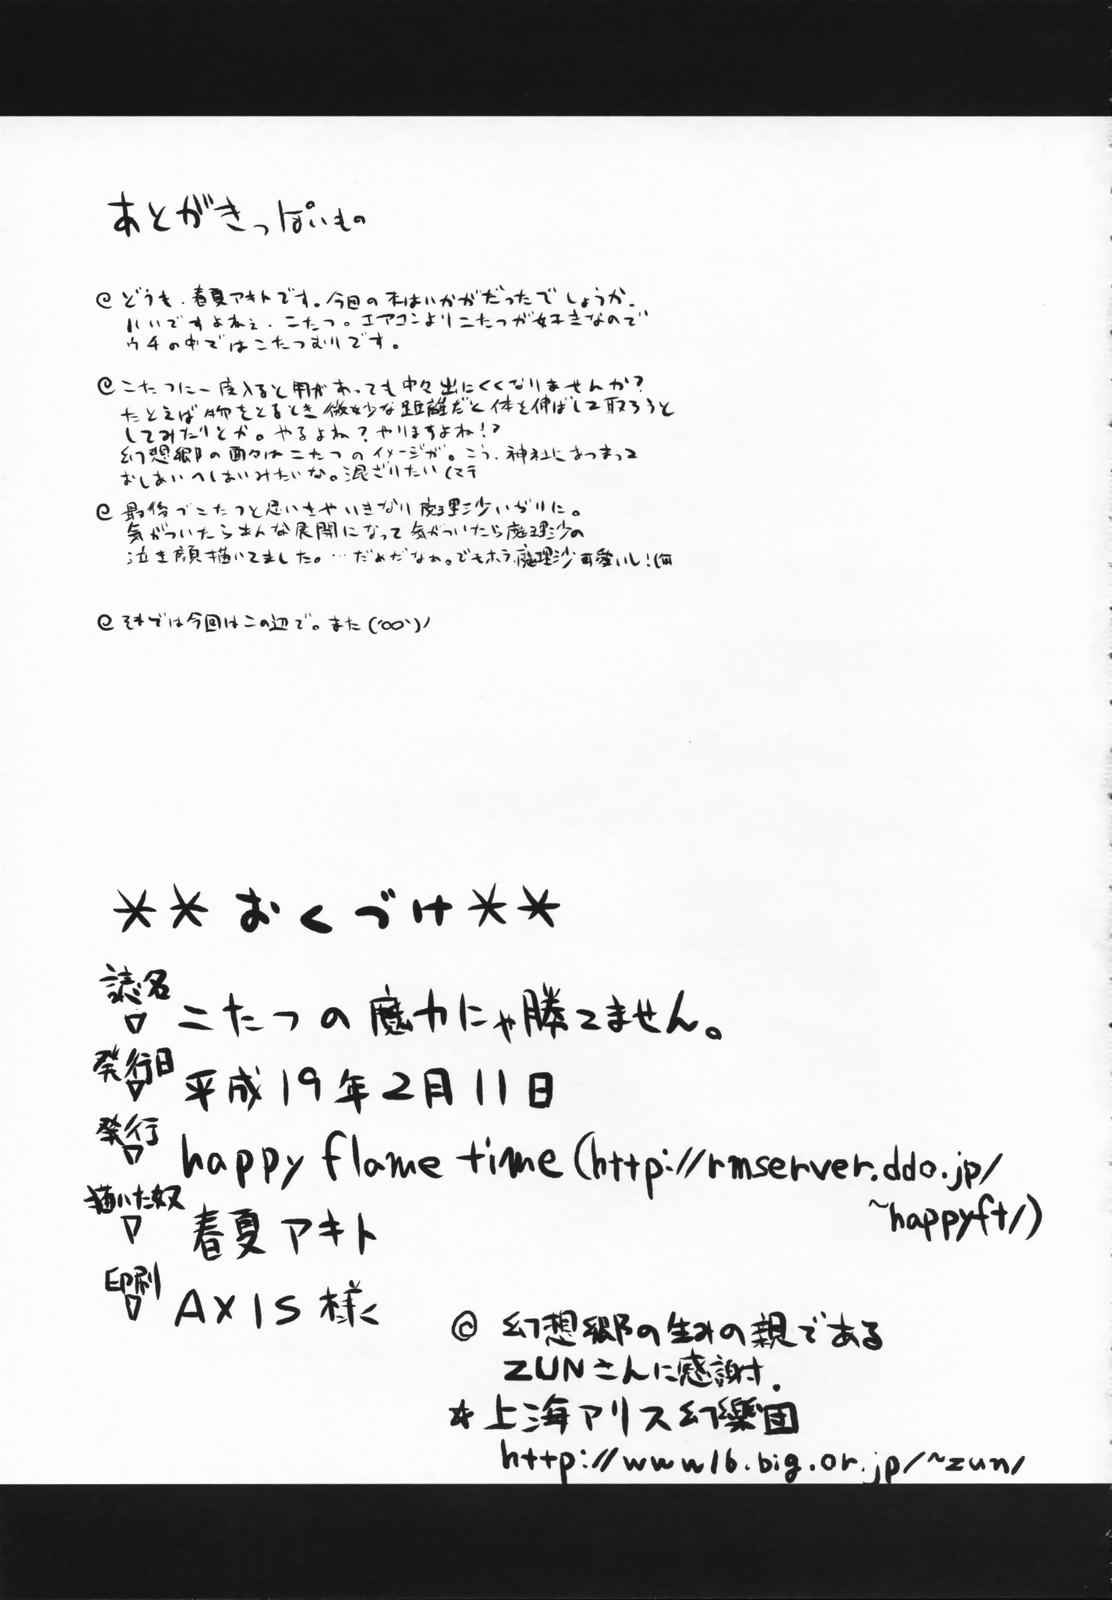 あとがきっぽいもの
どうも、春夏アキトです。今回の本はいかがだったでしょうか。
いいですよねぇ、こたつ。エアコンよりこたつが好きなので
ウチの中ではこたつむりです。
こたつに一度入ると用があっても中々出にくくなりませんか?
たとえば物をとるとき微妙な距離だと体を伸ばして取ろうと
してみたりとか。やるよね?やりますよね!?
幻想郷の面々はこたつのイメージが。こう、神社にあつまって
おしあいへしあいみたいな。混ざりたい(マテ
最後でこたつと思いきやいきなり魔理沙いぢりに。
気がついたらあんな展開になって気がついたら魔理沙の
泣き顔描いてました。…だめだなぁ。でもホラ、魔理沙可愛いし!(何
それでは今回はこの辺で。また(´∞`)ノ
**おくづけ**
誌名
こたつの魔力にゃ勝てません。
発行日
平成19年2月11日
発行
happy flame time(http://rmserver.ddo.jp/
~happyft/)
描いた奴
春夏アキト
印刷
AXIS様
© 幻想郷の生みの親である
ZUNさんに感謝.
☆上海アリス幻樂団
http://www16.big.or.jp/~zun/